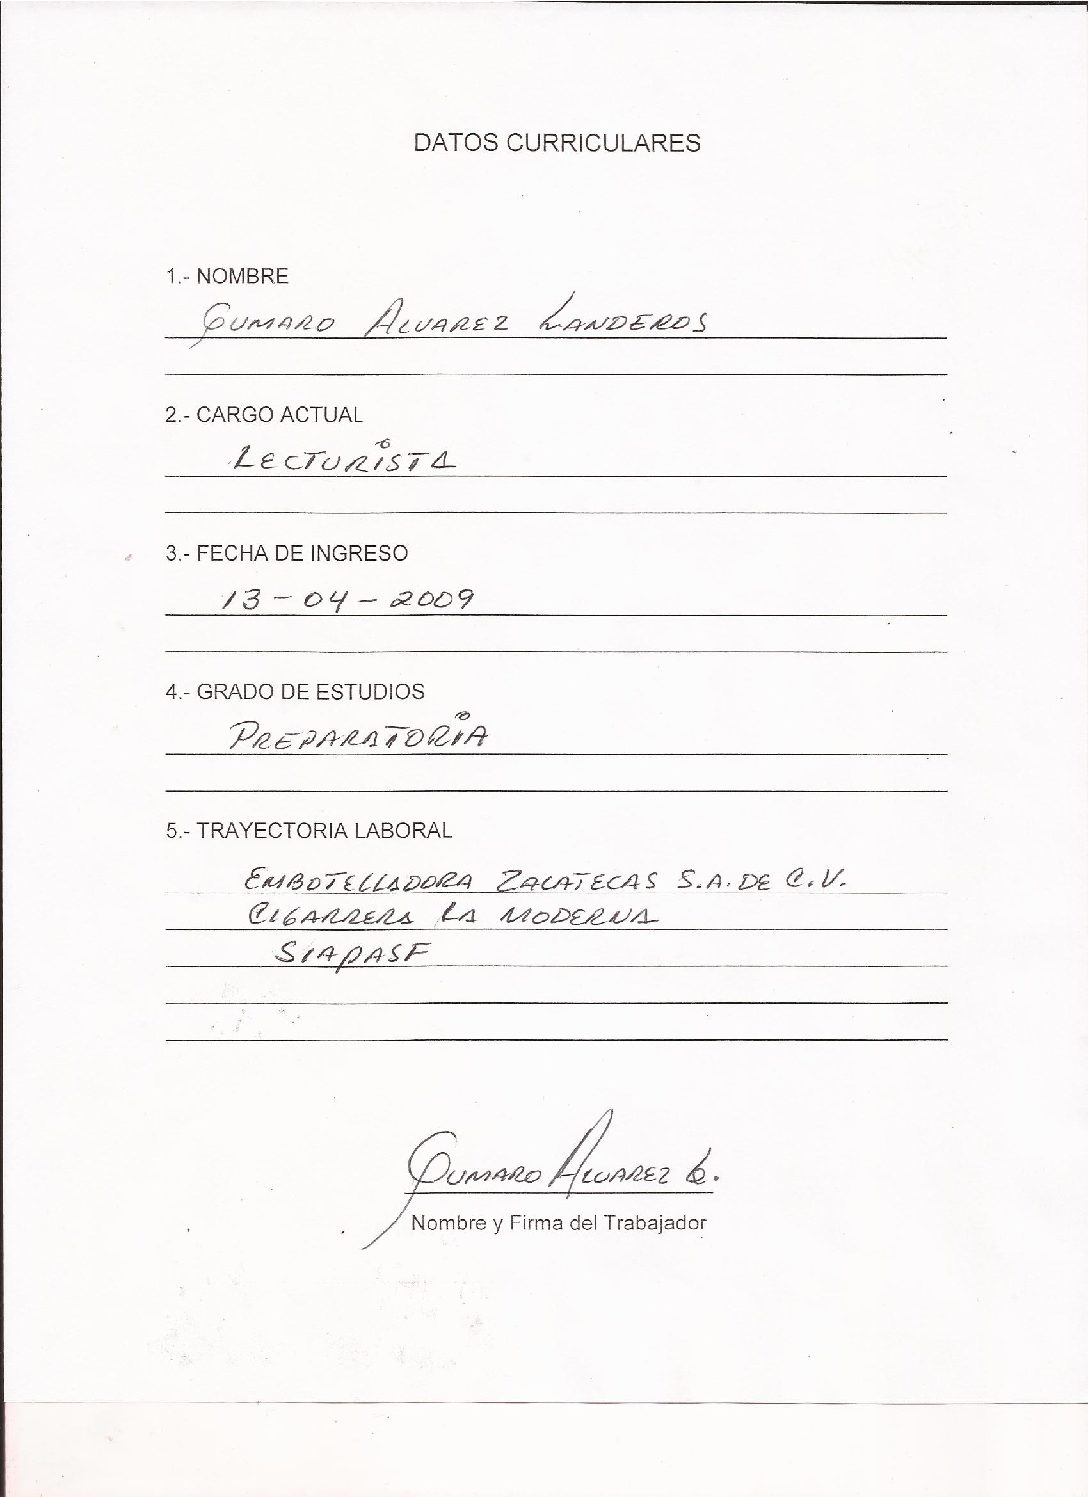 DATOS CURRICULARES
1.- NOMBRE
GUMARO ALVAREZ LANDEROS
2.- CARGO ACTUAL
LECTURISTA
3.- FECHA DE INGRESO
13-04-2009
4.- GRADO DE ESTUDIOS
PREPARATORIA
5.- TRAYECTORIA LABORAL
EMBOTELLADORA ZACATECAS S.A. DE C.V.
CIGARRERA LA MODERNA
SIAPASF
GUMARO ALVAREZ L.
Nombre y Firma del Trabajador